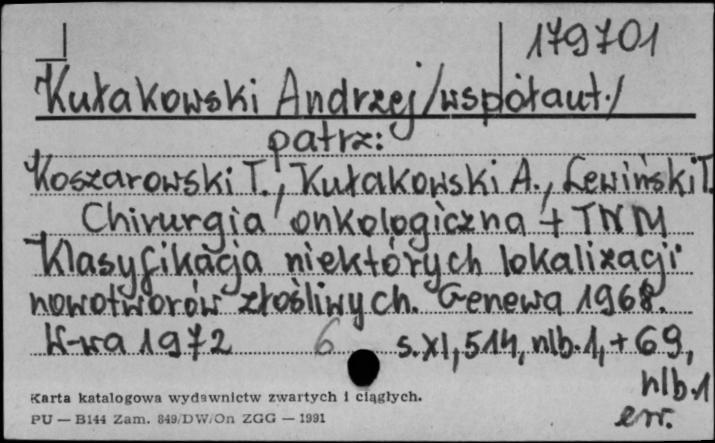 I
179701
Kułakowski Andrzej /współaut./
patrz:
Koszarowski T., Kułakowski A., Lewiński T.
Chirurgia onkologiczna + TNM
Klasyfikacja niektórych lokalizacji
nowotworów złośliwych. Genewa 1968.
W-wa 1972 6 s. XI, 514, nlb. 1, + 69,
nlb. 1
err.
Karta katalogowa wydawnictw zwartych i ciągłych.
PU — B144 Zam. 849/DW/On ZGG — 1991